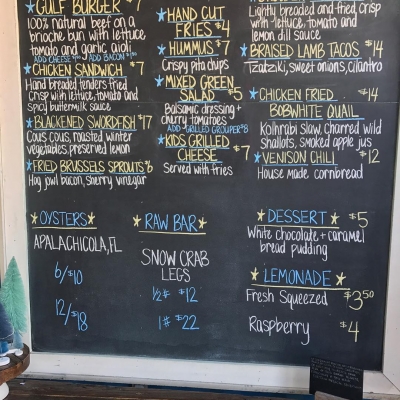 ★GULF BURGER $7
100% natural beef on a
brioche bun with lettuce
tomato and garlic aioli
ADD CHEESE $1.00 ADD BACON $1.00
★CHICKEN SANDWICH $7
Hand breaded tenders fried
crisp with lettuce, tomato and
spicy buttermilk sauce
★BLACKENED SWORDFISH $17
Cous Cous, roasted winter
vegetables, preserved lemon
★FRIED BRUSSELS SPROUTS $6
Hog jowl bacon, sherry vinegar
★OYSTERS★
APALACHICOLA, FL
6/$10
12/$18
★HAND CUT
FRIES $4
★HUMMUS $7
Crispy pita chips
★MIXED GREEN
SALAD $5
Balsamic dressing +
cherry tomatoes
ADD GRILLED GROUPER $8
★KIDS GRILLED
CHEESE $7
Served with fries
★RAW BAR★
SNOW CRAB
LEGS
½# $12
1# $22
Lightly breaded and fried, crisp
with lettuce, tomato and
lemon dill sauce
★BRAISED LAMB TACOS $14
Tzatziki, sweet onions, cilantro
★CHICKEN FRIED $14
BOBWHITE QUAIL
Kolhrabi slaw, charred wild
shallots, smoked apple jus
★VENISON CHILI $12
House made cornbread
★DESSERT★ $5
White chocolate + caramel
bread pudding
★LEMONADE★
Fresh Squeezed $3.50
Raspberry $4